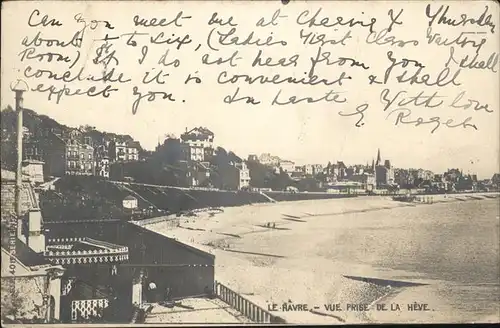 Can you meet me at Charing X Thursday
about ¼ to Six, (Ladies First Class Waiting
Room) If I do not hear from you I shall
conclude it is convenient & shall
expect you. In haste
With love
LE HAVRE – VUE PRISE DE LA HÊVE